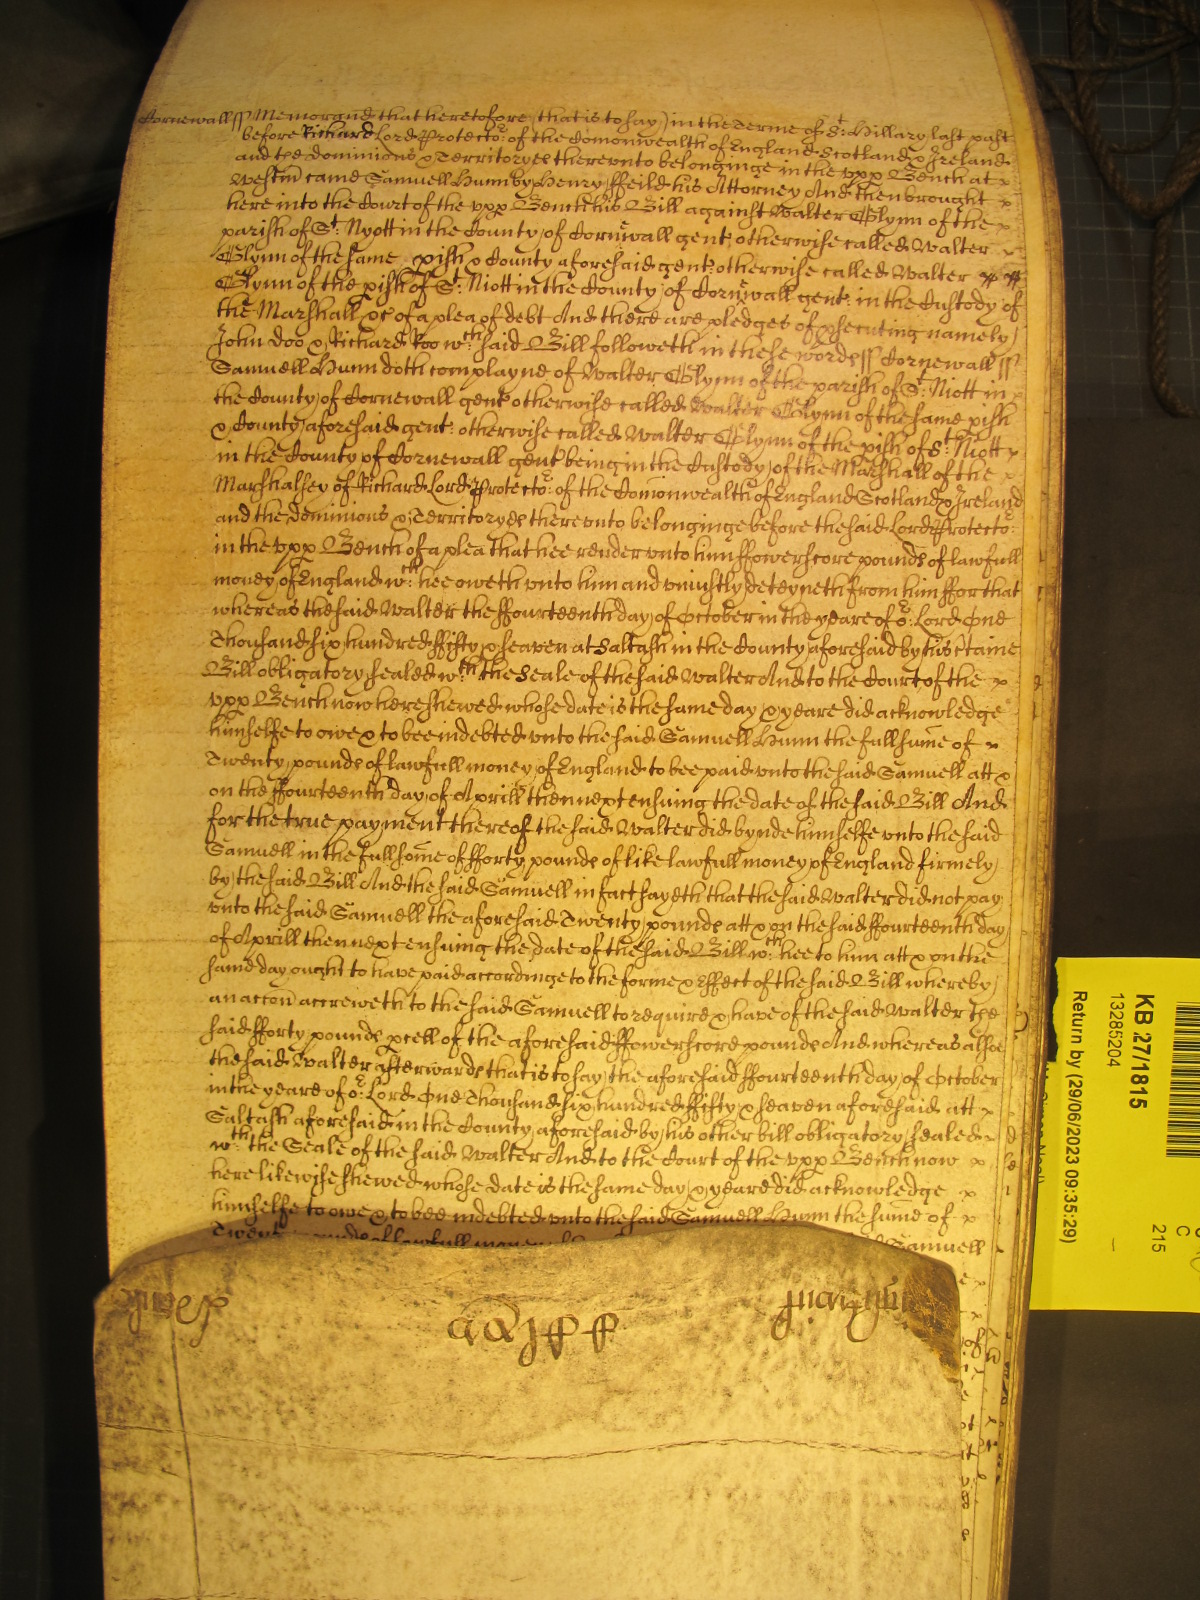 Cornewall ss Memorand that heretofore (that is to say) in the Terme of St: Hillary last past
before Richard Lord Protector: of the Comonwealth of England Scotland & Ireland
and the dominions & Territoryes therevnto belonginge in the vpp Bench at
Westm came Samuell Hunn by Henry ffeild his Attorney And then brought
here into the Court of the vpp Bench his Bill against Walter Glynn of the
parish of St: Nyott in the County of Cornewall gent: otherwise called Walter
Glynn of the same pish & County aforesaid gent: otherwise called Walter
Glynn of the pish of St: Niott in the County of Cornewall gent: in the Custody of
the Marshall &c of a plea of debt And there are pledges of psecuting namely
John Doo & Richard Roo wch: said Bill followeth in these wordes ss Cornewall ss
Samuell Hunn doth complayne of Walter Glynn of the parish of St: Niott in
the County of Cornewall gent otherwise called Walter Glynn of the same pish
& County aforesaid gent: otherwise called Walter Glynn of the pish of St: Niott
in the County of Cornewall gent being in the Custody of the Marshall of the
Marshalsey of Richard Lord Protector: of the Comonwealth of England Scotland & Ireland
and the dominions & Territoryes therevnto belonginge before the said Lord Protector:
in the vpp Bench of a plea that hee render vnto him ffowerscore poundes of lawfull
money of England wch: hee oweth vnto him and vniustly deteyneth from him ffor that
whereas the said Walter the ffourteenth day of October in the yeare of or: Lord One
Thousand six hundred ffifty & seaven at Saltash in the County aforesaid by his ctaine
Bill obligatory sealed wth the Seale of the said Walter And to the Court of the
vpp Bench now here shewed whose date is the same day & yeare did acknowledge
himselfe to owe & to bee indebted vnto the said Samuell Hunn the full sume of
Twenty poundes of lawfull money of England to bee paid vnto the said Samuell att &
on the ffourteenth day of Aprill then next ensuing the date of the said Bill And
for the true payment thereof the said Walter did bynde himselfe vnto the said
Samuell in the full some of fforty poundes of like lawfull money of England firmely
by the said Bill And the said Samuell in fact sayeth that the said Walter did not pay
vnto the said Samuell the aforesaid Twenty poundes att & on the said ffourteenth day
of Aprill then next ensuing the date of the said Bill wch: hee to him att & on the
same day ought to have paid accordinge to the forme & Effect of the said Bill whereby
an accon accreweth to the said Samuell to require & have of the said Walter the
said fforty poundes pcell of the aforesaid ffowerscore poundes And whereas alsoe
the said Walter afterwardes that is to say the aforesaid ffourteenth day of October
in the yeare of or: Lord One Thousand six hundred ffifty & seaven aforesaid att
Saltash aforesaid in the County aforesaid by his other bill obligatory sealed
wth: the Seale of the said Walter And to the Court of the vpp Bench now
here likewise shewed whose date is the same day & yeare did acknowledge
himselfe to owe & to bee indebted vnto the said Samuell Hunn the sume of
Twenty poundes of lawfull money Samuell
KB 27/1815
13285204
Return by (29/06/2023 09:35:29)
215
C